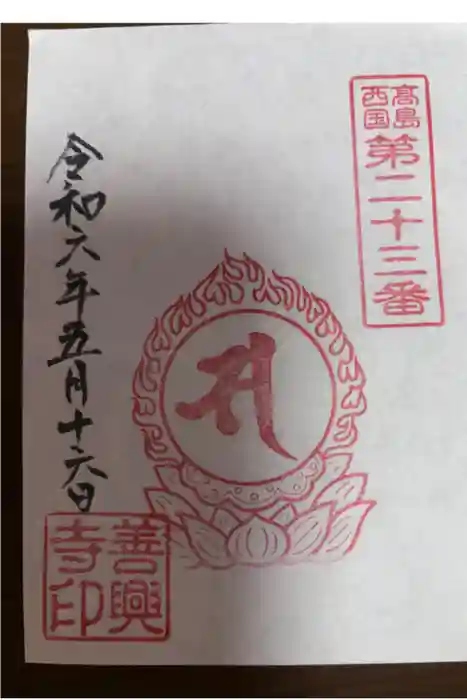 髙島
西国
第二十三番
サ
令和六年五月十六日
善興
寺印